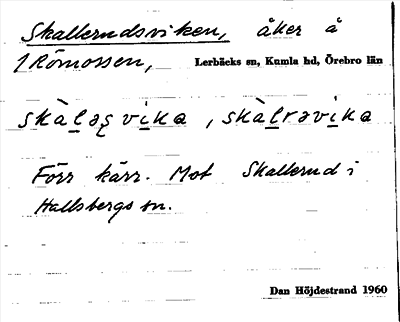 Skallerudsviken, åker å
1 Römossen, Lerbäcks sn, Kumla hd, Örebro län
skàḷəs̨vi̱ka, skàḷrəvi̱ka
Förr kärr. Mot Skallerud i
Hallsbergs sn.
Dan Höjdestrand 1960